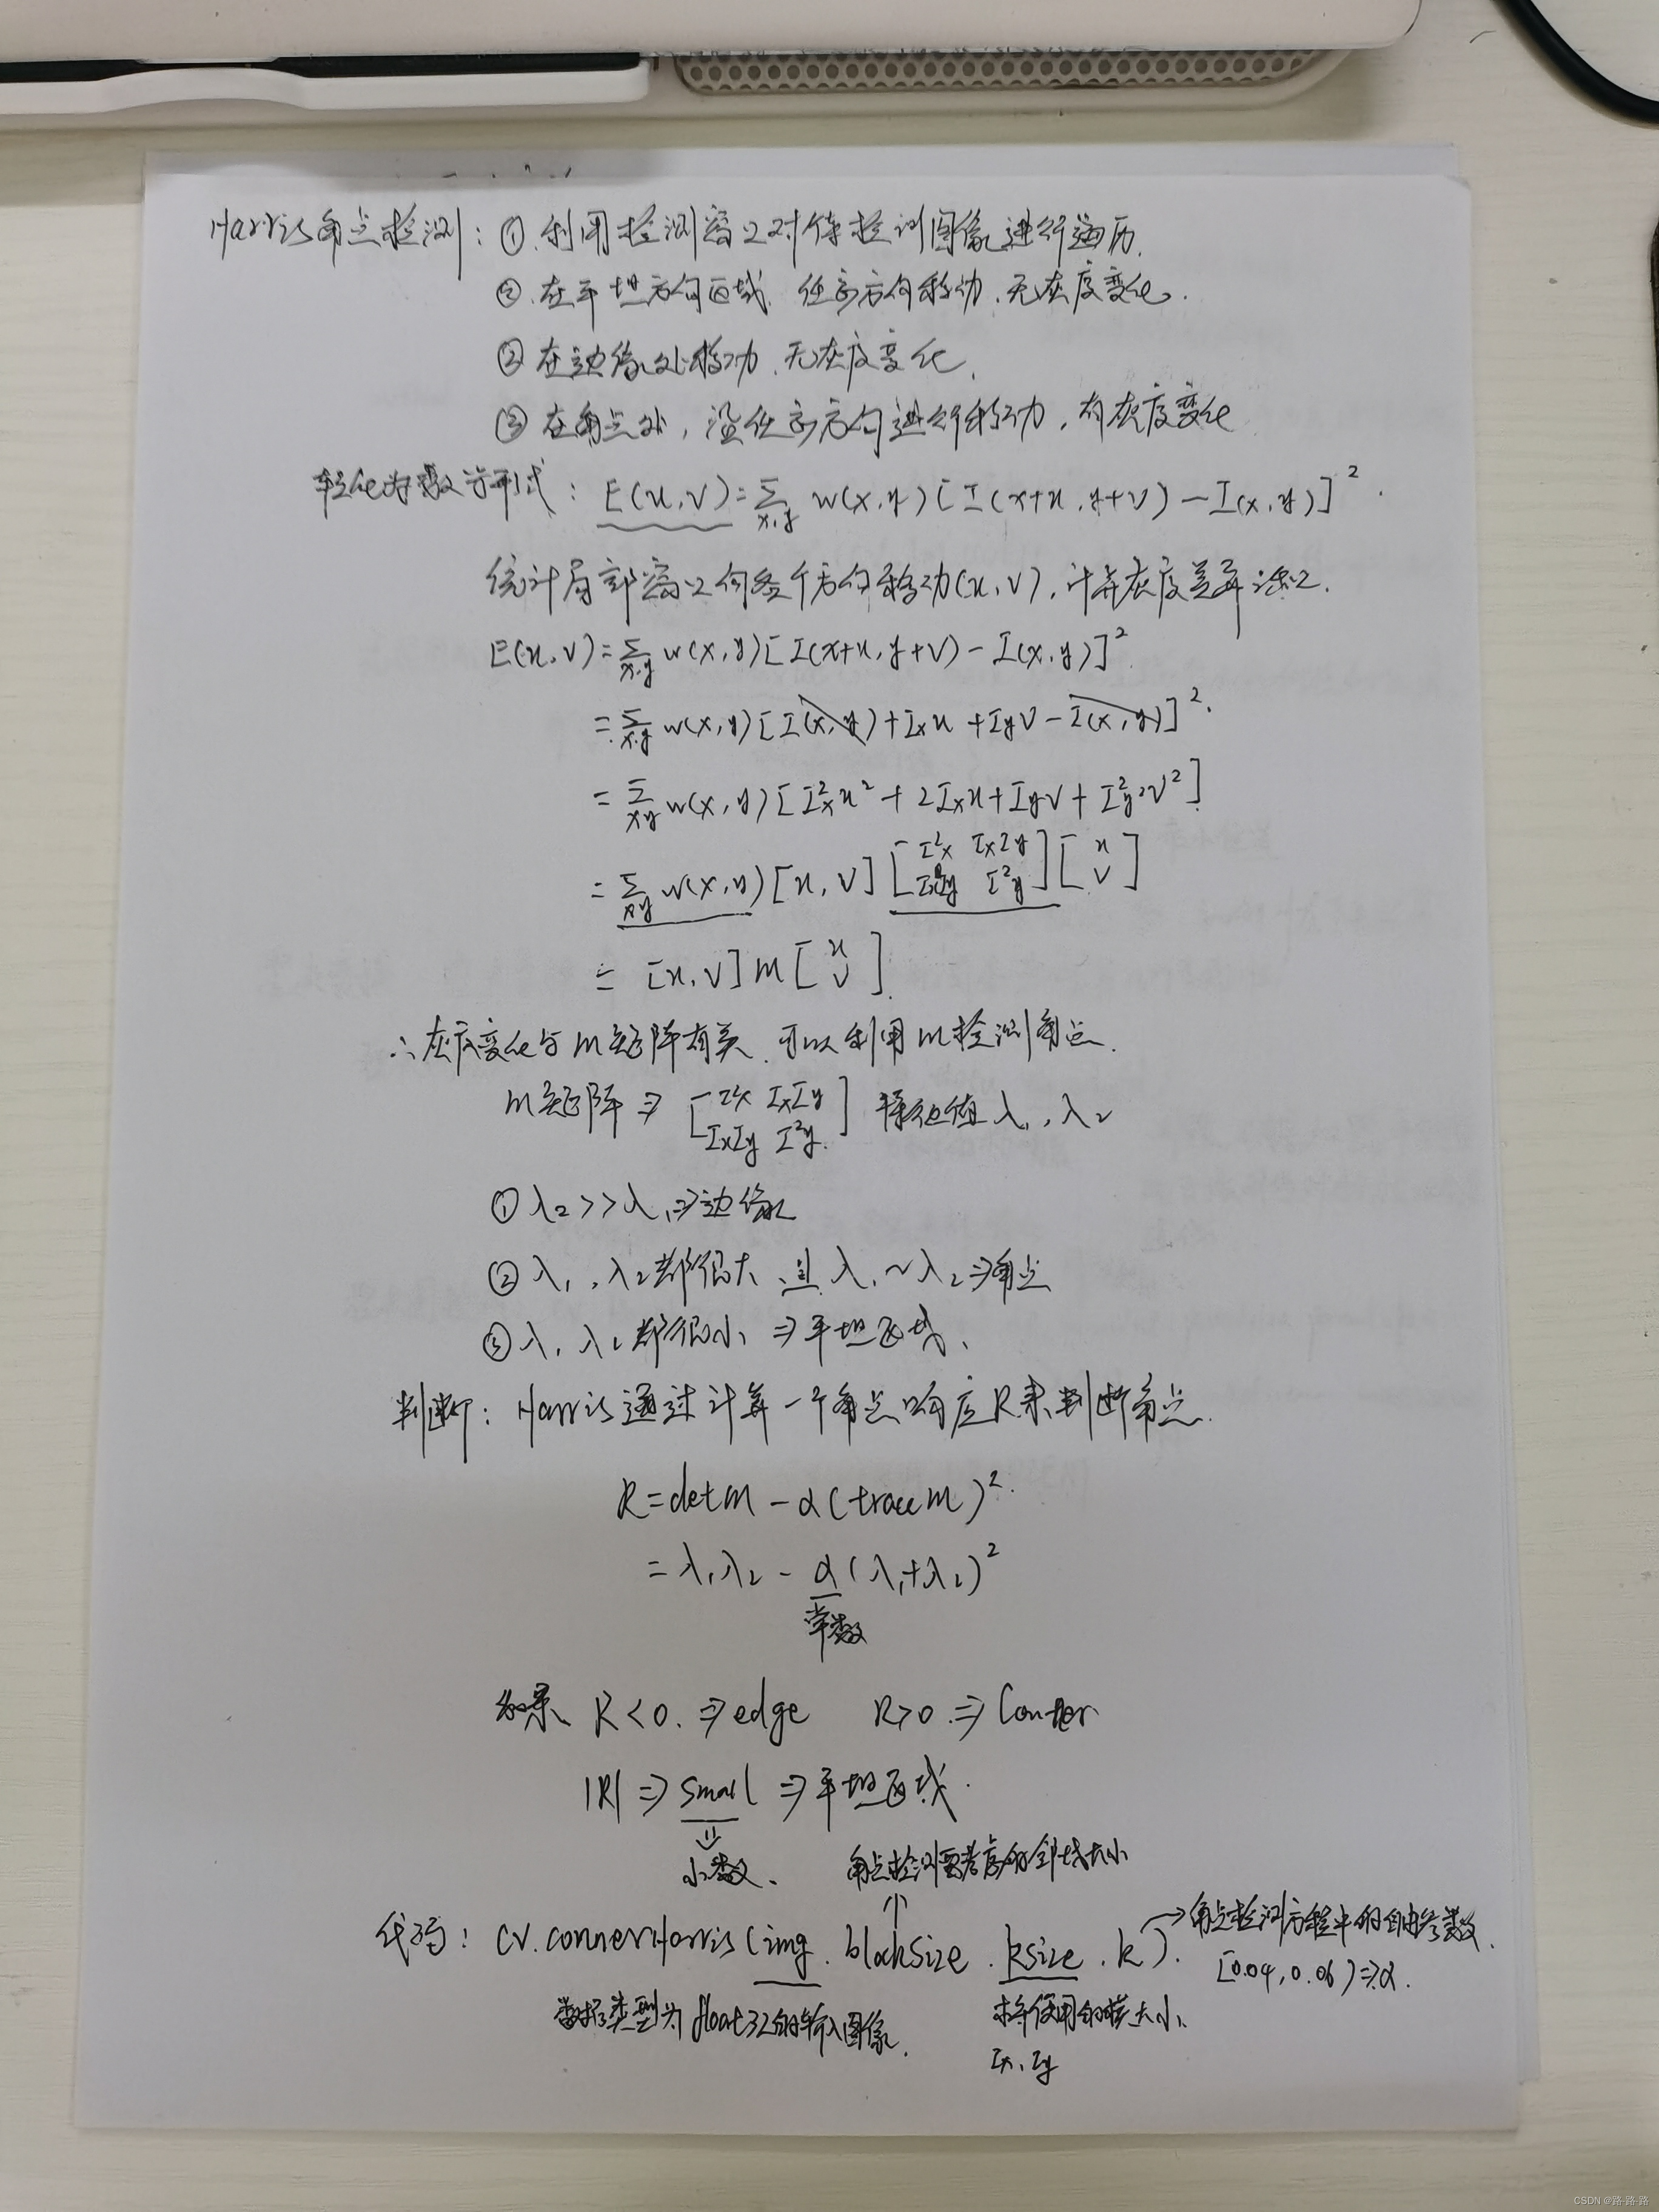 Harris角点检测：①.利用检测窗口对待检测图像进行遍历.
②.在平坦方向区域.任意方向移动.无灰度变化.
②在边缘处移动.无灰度变化.
③在角点处，沿任意方向进行移动，有灰度变化
转化为数学形式：E(u,v)=∑x,y w(x,y)[I(x+u,y+v)-I(x,y)]².
统计局部窗口向各个方向移动(u,v),计算灰度差异总和.
E(u,v)=∑x,y w(x,y)[I(x+u,y+v)-I(x,y)]²
=∑x,y w(x,y)[I(x,y)+Ixu+Iyv-I(x,y)]².
=∑xy w(x,y)[I²xu²+2Ixu+Iyv+I²y·v²]
=∑xy w(x,y)[u,v][I²x IxIy IxIy I²y][u v]
=[u,v]M[u v].
∴灰度变化与M矩阵有关.可以利用M检测角点.
M矩阵⇒[I²x IxIy IxIy I²y.] 特征值λ1,λ2
①λ2>>λ1⇒边缘
②λ1,λ2都很大、且λ1~λ2⇒角点
③λ1 λ2都很小⇒平坦区域、
判断：Harris通过计算一个角点响应R来判断角点.
R=detM-α(traceM)².
=λ1λ2-α(λ1+λ2)²
常数
如果、R<0.⇒edge R>0.⇒Conter
|R|⇒small⇒平坦区域.
小数、 角点检测要考虑的邻域大小
代码：cv.connerHarris(img.blockSize.ksize.k).→角点检测方程中的自由参数.
[0.04,0.06)⇒α.
数据类型为float32的输入图像. 求导使用的核大小.
Ix,Iy
CSDN @路·路·路